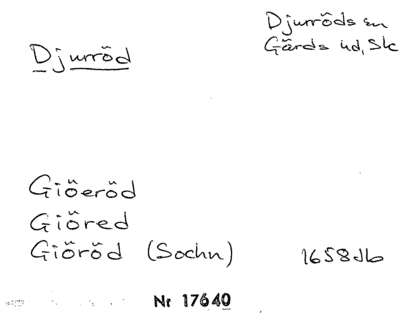 Djurröd
Djurröds sn
Gärds hd, Sk
Giöeröd
Giöred
Giöröd (Sochn) 1658 Jb
Nr 17640